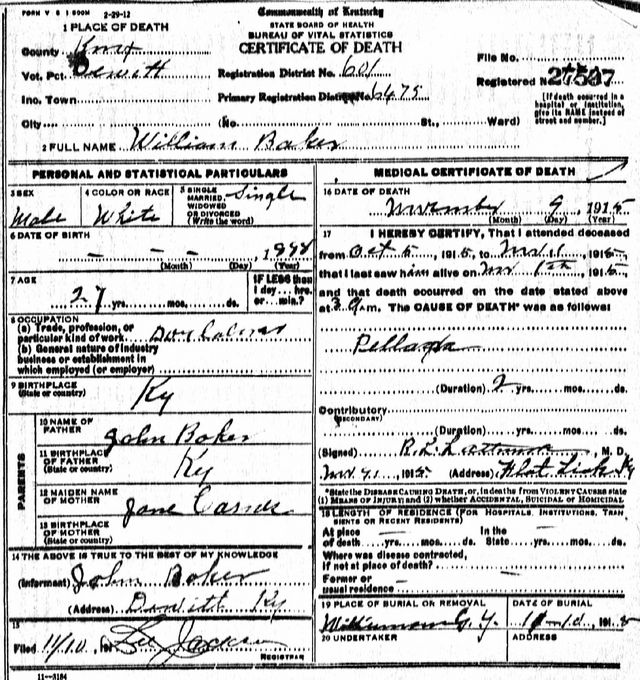 FORM V S 1 500M 2-29-12
Commonwealth of Kentucky
STATE BOARD OF HEALTH
BUREAU OF VITAL STATISTICS
CERTIFICATE OF DEATH
1 PLACE OF DEATH
County Knox
Vot. Pct. Dewitt
Inc. Town
City
Registration District No. 601
Primary Registration District No. 6475
File No.
Registered No. 27507
[If death occurred in a hospital or institution, give its NAME instead of street and number.]
(No. St., Ward)
2 FULL NAME William Baker
PERSONAL AND STATISTICAL PARTICULARS
3 SEX Male
4 COLOR OR RACE White
5 SINGLE MARRIED, WIDOWED OR DIVORCED (Write the word) Single
6 DATE OF BIRTH
(Month) (Day) (Year)
7 AGE 27 yrs. mos. ds.
IF LESS than 1 day... hrs. or... min.?
8 OCCUPATION
(a) Trade, profession, or particular kind of work
(b) General nature of industry business or establishment in which employed (or employer)
9 BIRTHPLACE (State or country) Ky
PARENTS
10 NAME OF FATHER John Baker
11 BIRTHPLACE OF FATHER (State or country) Ky
12 MAIDEN NAME OF MOTHER Jane
13 BIRTHPLACE OF MOTHER (State or country)
14 THE ABOVE IS TRUE TO THE BEST OF MY KNOWLEDGE
(Informant) John Baker
(Address) Dewitt Ky
15
Filed 11/10, 191 Lee Jackson
REGISTRAR
11--3184
MEDICAL CERTIFICATE OF DEATH
16 DATE OF DEATH
November 9 1915
(Month) (Day) (Year)
17 I HEREBY CERTIFY, That I attended deceased
from Oct 5, 1915, to Nov 1, 1915,
that I last saw him alive on Nov 1st, 1915,
and that death occurred on the date stated above
at m. The CAUSE OF DEATH* was as follows:
Pellagra
(Duration) 2 yrs. mos. ds.
Contributory
(SECONDARY)
(Duration) yrs. mos. ds.
(Signed) R. L. M. D.
1915 (Address) Flat Lick Ky
*State the DISEASE CAUSING DEATH, or, in deaths from VIOLENT CAUSES state (1) MEANS OF INJURY; and (2) whether ACCIDENTAL, SUICIDAL or HOMICIDAL
18 LENGTH OF RESIDENCE (FOR HOSPITALS, INSTITUTIONS, TRANSIENTS OR RECENT RESIDENTS)
At place of death yrs. mos. ds. In the State yrs. mos. ds.
Where was disease contracted, if not at place of death?
Former or usual residence
19 PLACE OF BURIAL OR REMOVAL
G. Y.
DATE OF BURIAL
11-10, 1915
20 UNDERTAKER
ADDRESS